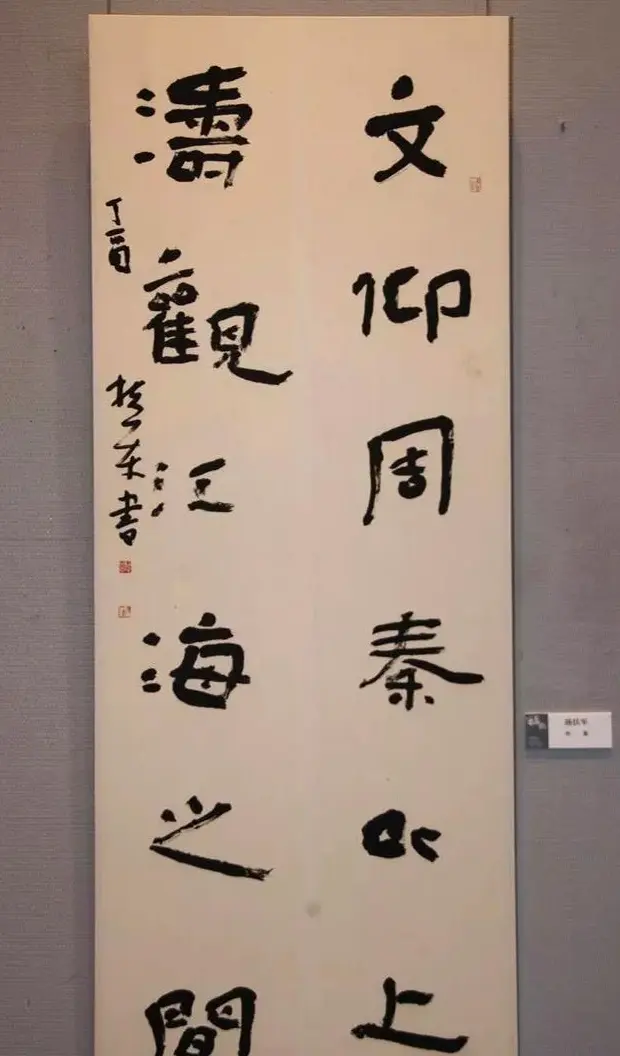 文仰周秦以上
濤觀江海之間
丁酉
書